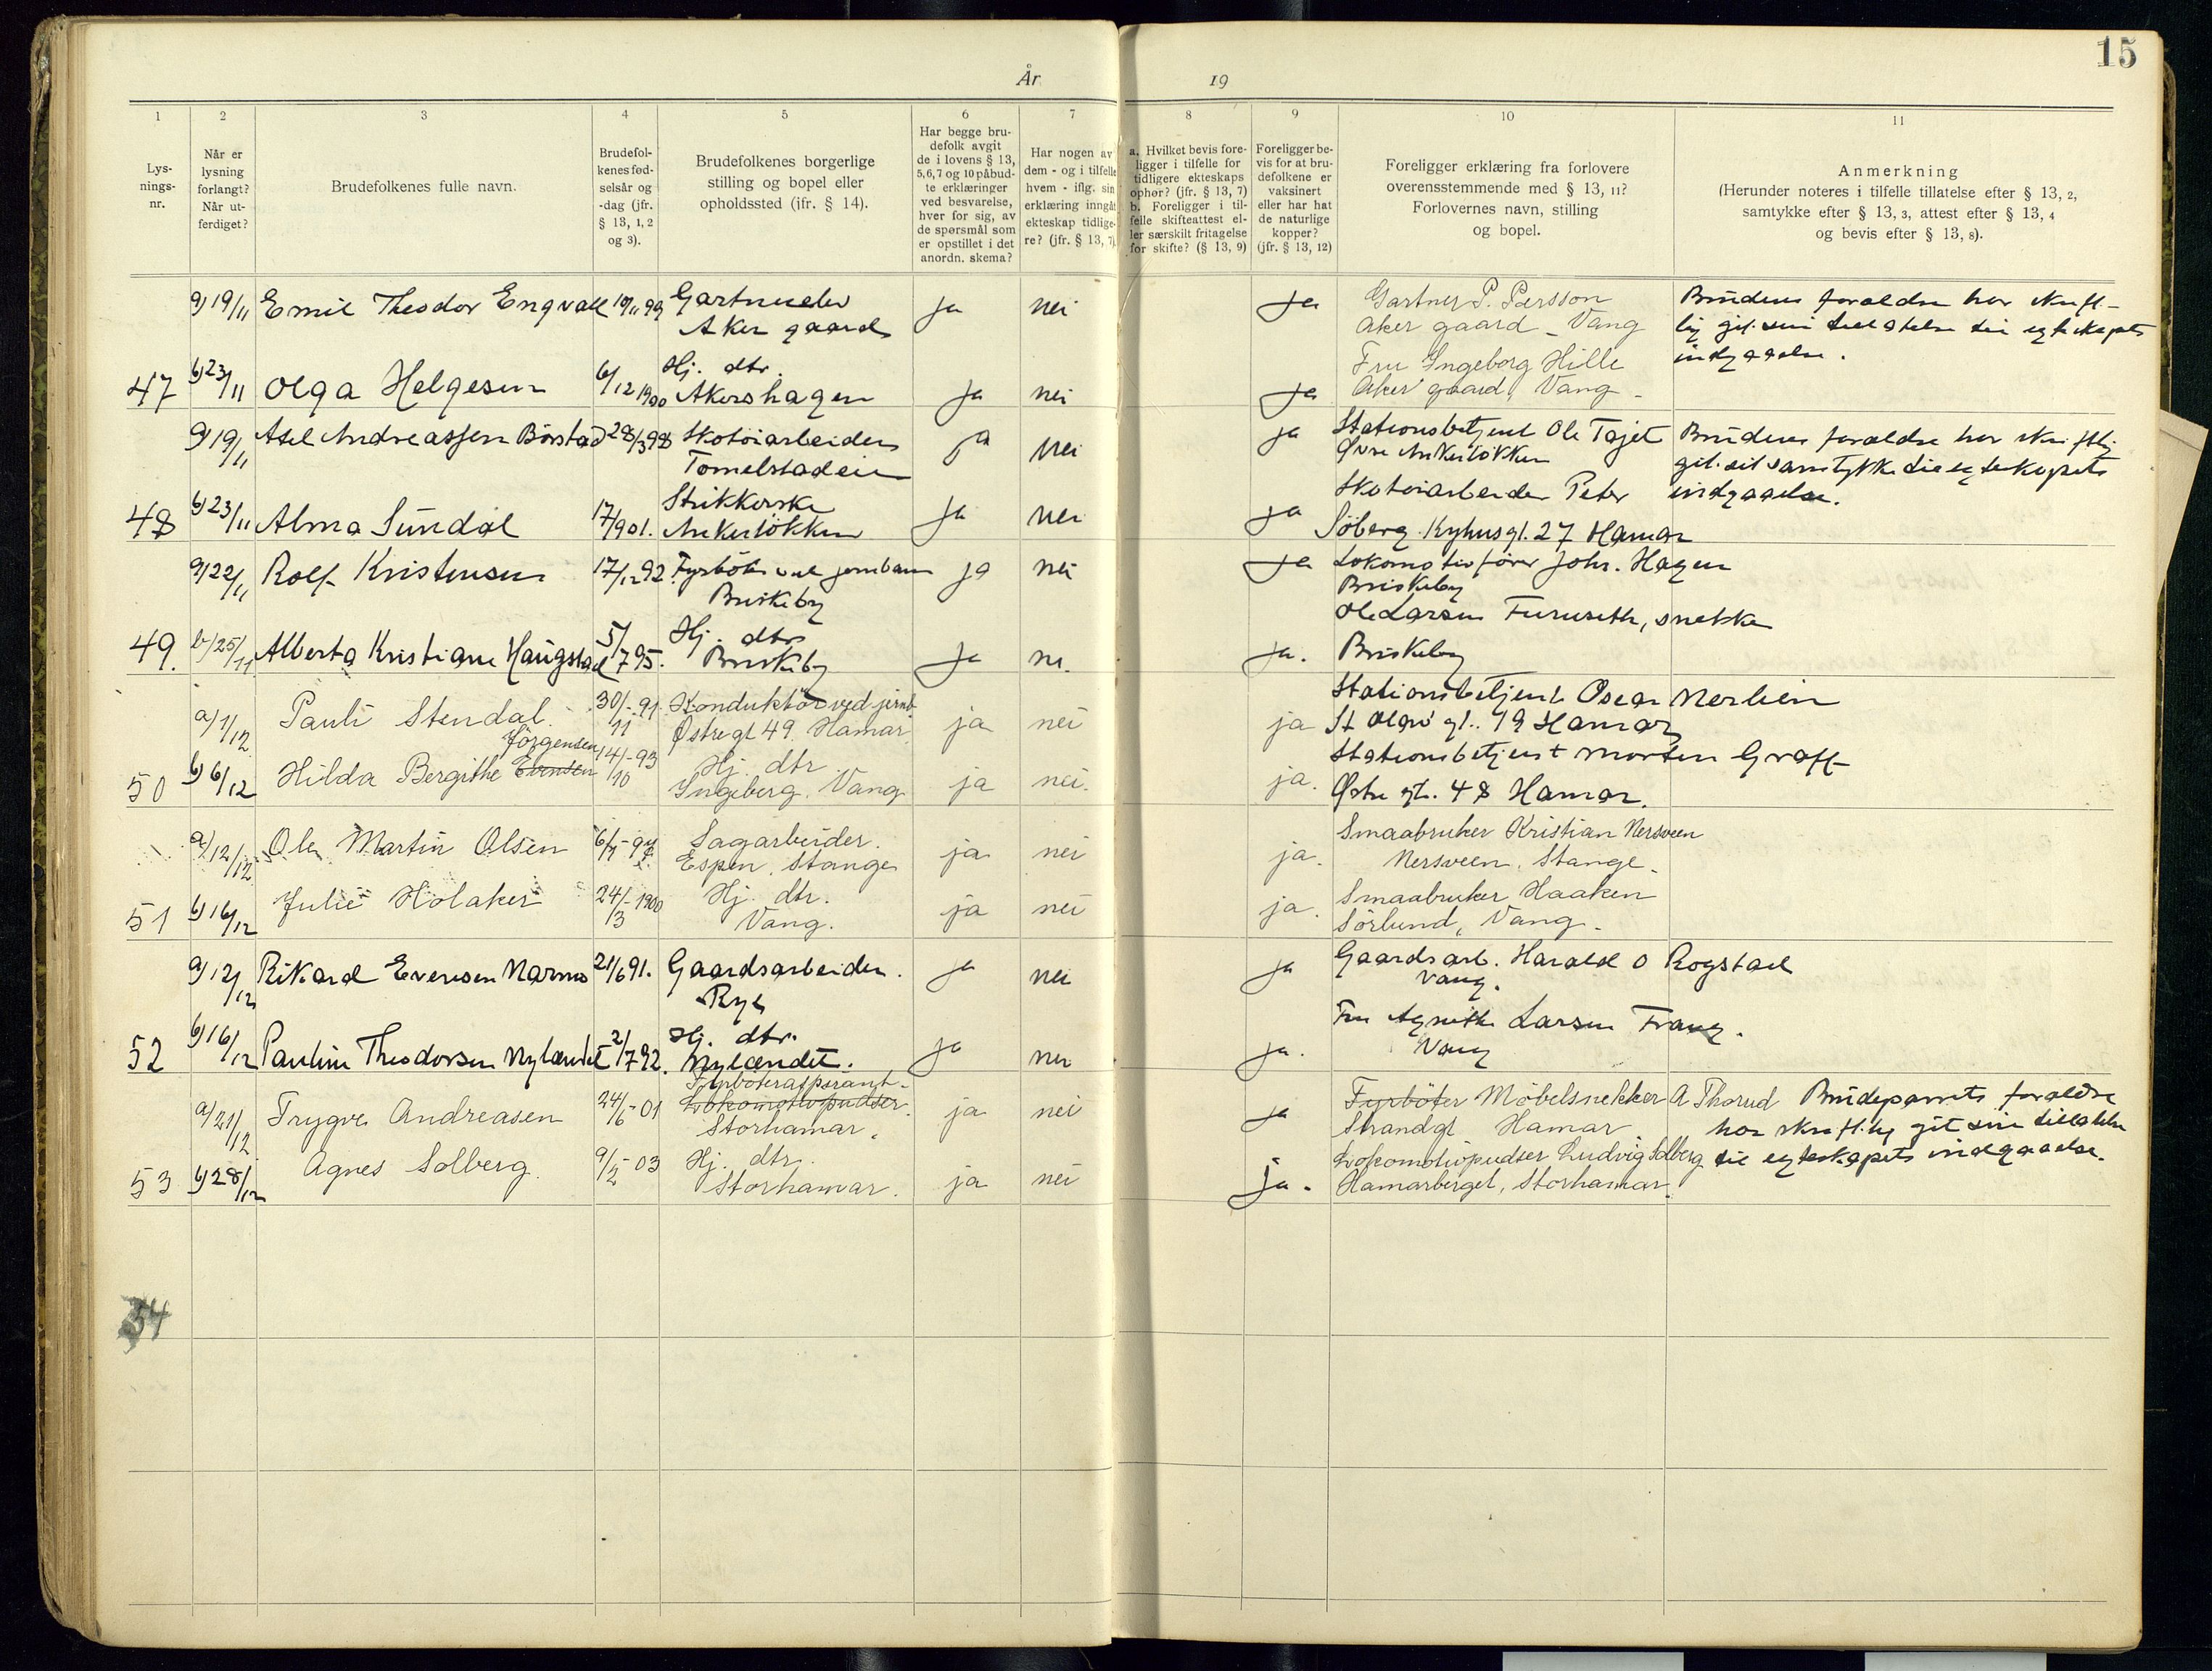 15
År 19
1 2 3 4 5 6 7 8 9 10 11
Lys-
nings-
nr.
Når er
lysning
forlangt?
Når ut-
ferdiget?
Brudefolkenes fulle navn.
Brudefol-
kenes fød-
selsår og
-dag (jfr.
§ 13, 1, 2
og 3).
Brudefolkenes borgerlige
stilling og bopel eller
opholdssted (jfr. § 14).
Har begge bru-
defolk avgit
de i lovens § 13,
5, 6, 7 og 10 påbud-
te erklæringer
ved besvarelse,
hver for sig, av
de spørsmål som
er opstillet i det
anordn. skema?
Har nogen av
dem - og i tilfelle
hvem - iflg. sin
erklæring inngåt
ekteskap tidlige-
re? (jfr. § 13, 7)
a. Hvilket bevis fore-
ligger i tilfelle for
tidligere ekteskaps
ophør? (jfr. § 13, 7)
b. Foreligger i til-
felle skifteattest el-
ler særskilt fritagelse
for skifte? (§ 13, 9)
Foreligger be-
vis for at bru-
defolkene er
vaksinert
eller har hat
de naturlige
kopper?
(jfr. § 13, 12)
Foreligger erklæring fra forlovere
overensstemmende med § 13, 11?
Forlovernes navn, stilling
og bopel.
Anmerkning
(Herunder noteres i tilfelle tillatelse efter § 13, 2,
samtykke efter § 13, 3, attest efter § 13, 4
og bevis efter § 13, 8).
a) 19/11 Emil Theodor Engvall 19/11 99 Gartnerelev ja nei ja Gartner P. Persson Brudens foræld­re har skrift-
Aker gaard Aker gaard - Vang lig git sin tillatelse til egteskapets
Hj. dtr. Fru Ingeborg Hille indgaaelse.
47 b) 23/11 Olga Helgesen 6/12 1900 Akershagen ja nei ja Aker gaard, Vang -
a) 19/11 Axel Andreassen Börstad 28/3 98 Skotöiarbeider ja nei ja Stationsbetjent Ole Tajet Brudens forældre har skriftlig
Tomelstadeie Övre Ankerlökken git sit samtykke til egteskapets
Strikkerske Skotöiarbeider Peter indgaaelse.
48 b) 23/11 Alma Sundal 17/9 01. Ankerlökken ja nei ja Söberg. Kyhusgt. 27 Hamar
a) 22/11 Rolf Kristensen 17/12 92 Fyrböter ved jernbanen ja nei ja Lokomotivförer Johs. Hagen
Briskeby Briskeby
Hj. dtr Ole Larsen Furuseth, snekker
49. b) 25/11 Alberta Kristiane Haugstad 5/7 95. Briskeby ja nei ja. Briskeby
30/11-91 Konduktör ved jernb. Stationsbetjent Oscar Merlien
a) 1/12 Pauli Stendal. Østregt 49. Hamar ja nei ja St Olavs gt. 79 Hamar
Jörgensen Stationsbetjent Morten Graff
50 b) 6/12 Hilda Bergithe Evensen 14/10-93 Hj. dtr ja nei. ja.
Ingeberg. Vang Østre gt. 48 Hamar.
a) 12/12 Ole Martin Olsen Sagarbeider. ja nei ja. Smaabruker Kristian Nersveen
Espen. Stange Nersveen. Stange.
Julie Holaker 24/3-1900 Hj. dtr. Smaabruker Haaken
51 b) 16/12 Vang. ja nei ja. Sörlund, Vang -
a) 12/12 Rikard Evensen Narmo 21/6 91. Gaardsarbeider. ja nei ja Gaardsarb. Harald O Rogstad
Ryh Vang.
Hj. dtr. Fru Agnethe Larsen Frang.
52 b) 16/12 Pauline Theodorsen Nylændet 2/7 92. Nylændet. ja nei ja. Vang
Fyrböteraspirant.
a) 21/12 Trygve Andreasen 24/6-01 Lokomotivpudser. ja nei ja Fyrböter Möbelsnekker A Thorud Brudeparrets forældre
Storhamar. Strandgt Hamar har skriftlig git sin tillatelse
Agnes Solberg 9/5-03 Hj. dtr. Lokomotivpudser Ludvig Solberg til egteskapets indgaaelse.
53 b) 28/12 Storhamar. ja nei ja. Hamarberget, Storhamar.
54